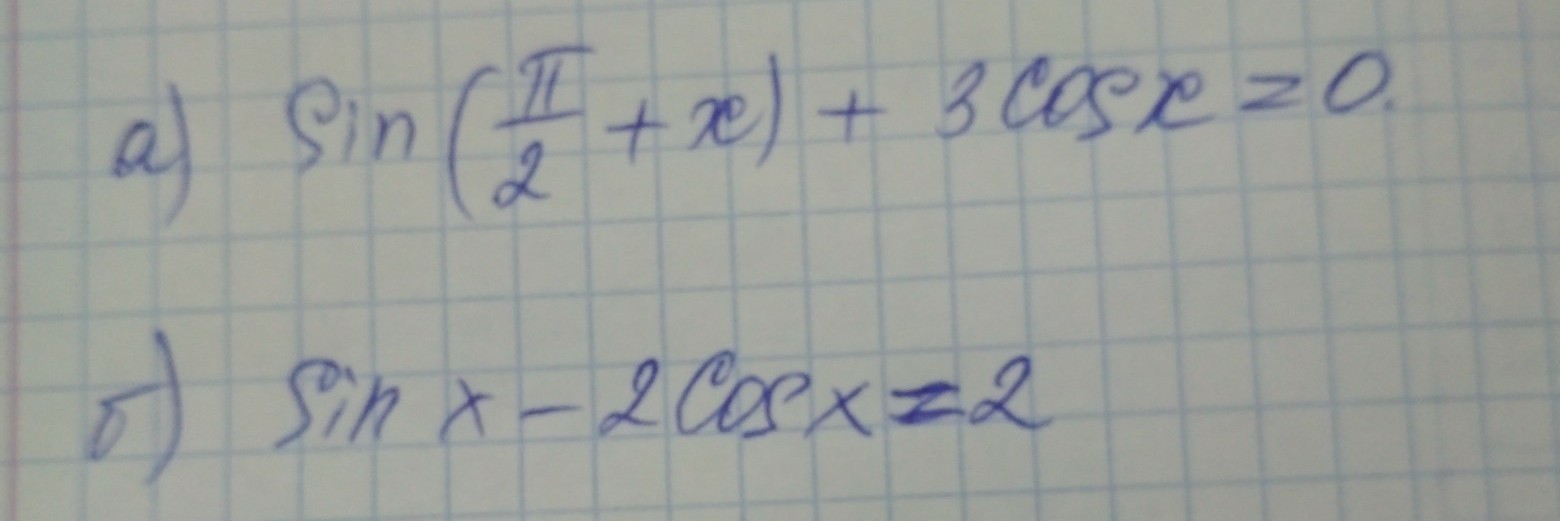 а) Sin(π/2 + x) + 3 Cos x = 0.
б) Sin x - 2 Cos x = 2